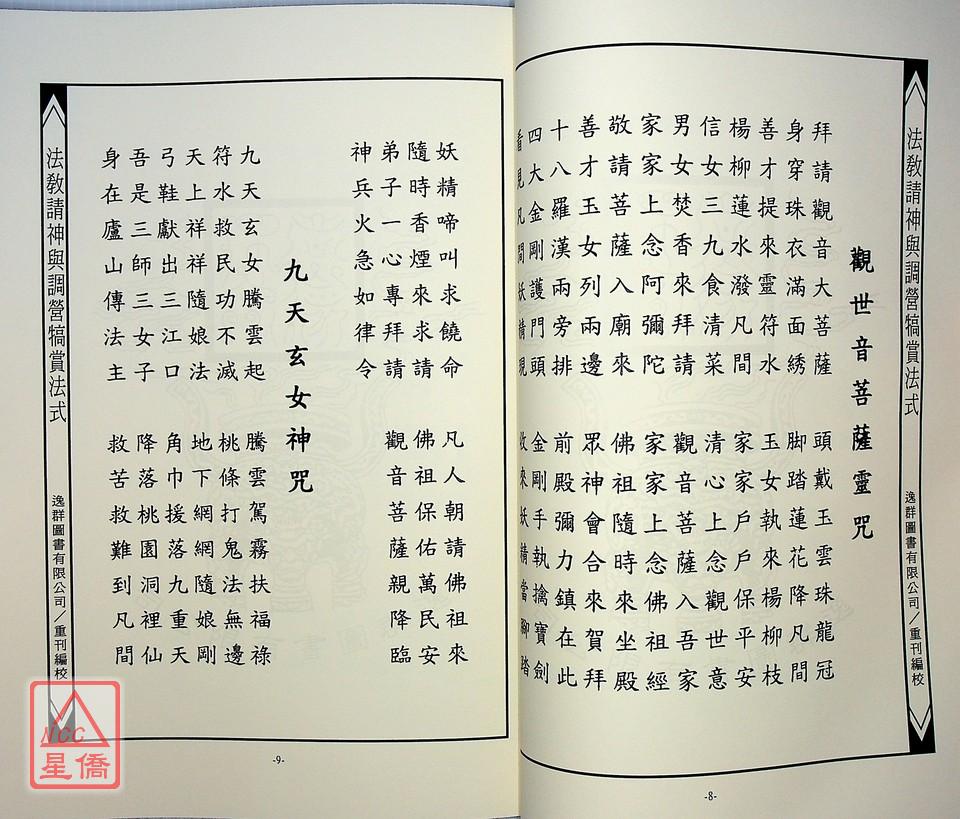 法教請神與調營犒賞法式
逸群圖書有限公司／重刊編校
觀世音菩薩靈咒
拜請觀音大菩薩　頭戴玉雲珠龍冠
身穿珠衣滿面綉　脚踏蓮花降凡間
善才提來靈符水　玉女執來楊柳枝
楊柳蓮水潑凡間　家家戶戶保平安
信女三九食清菜　清心上念觀世意
男女焚香來拜請　觀音菩薩入吾家
家家上念阿彌陀　家家上念佛祖經
敬請菩薩入廟來　佛祖隨時來坐殿
善才玉女列兩邊　眾神會合來賀拜
十八羅漢兩旁排　前殿彌力鎮在此
四大金剛護門頭　金剛手執擒寶劍
看見凡間妖精現　收來妖精當腳踏
-8-
妖精啼叫求饒命　凡人朝請佛祖來
隨時香煙來求請　佛祖保佑萬民安
弟子一心專拜請　觀音菩薩親降臨
神兵火急如律令
九天玄女神咒
九天玄女騰雲起　騰雲駕霧扶福祿
符水救民功不滅　桃條打鬼法無邊
天上祥祥隨娘法　地下網網隨娘剛
弓鞋獻出三江口　角巾援落九重天
吾是三師三女子　降落桃園洞裡仙
身在廬山傳法主　救苦救難到凡間
法教請神與調營犒賞法式
逸群圖書有限公司／重刊編校
-9-
NCC
星僑